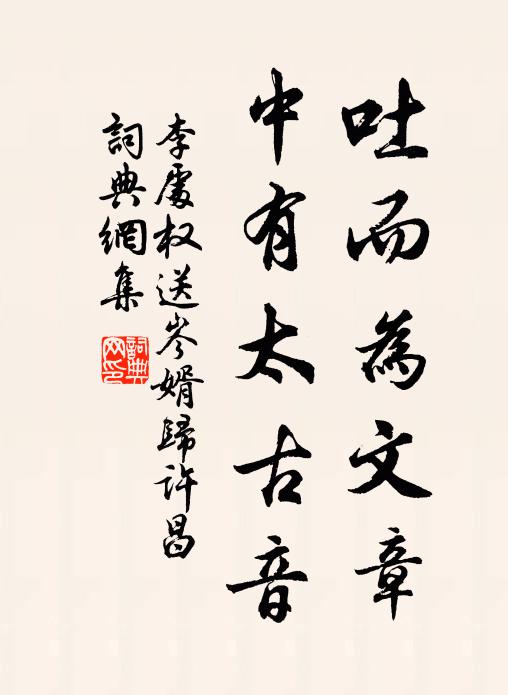 吐而為文章
中有太古音
李處权送岑婿歸許昌
詞典網集
詞典網印